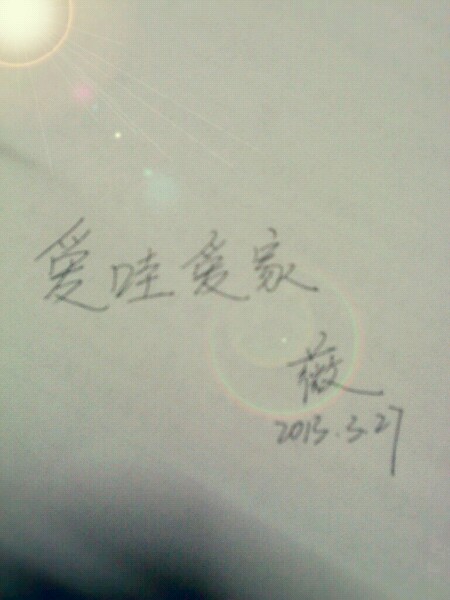 爱哇爱家
薇
2013.3.27